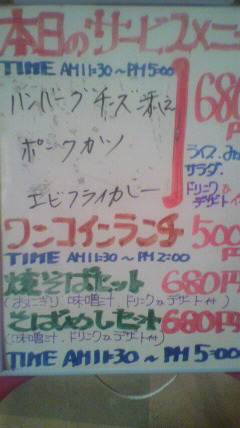 本日のサービスメニ
TIME AM11:30～PM5:00
ハンバーグチーズ添え
ポークカツ
エビフライカレー
680円
ライス、みそ
サラダ、
ドリンク
デザート
ワンコインランチ 500円
TIME AM11:30～PM2:00
焼そばセット 680円
(おにぎり、味噌汁、ドリンク、デザート付)
そばめしセット 680円
(味噌汁、ドリンク、デザート付)
TIME AM11:30～PM5:00